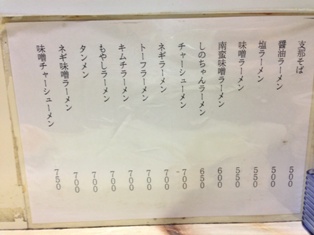 支那そば 500
醤油ラーメン 500
塩ラーメン 550
味噌ラーメン 550
南蛮味噌ラーメン 600
しのちゃんラーメン 650
チャーシューメン 700
ネギラーメン 700
トーフラーメン 700
キムチラーメン 700
もやしラーメン 700
タンメン 700
ネギ味噌ラーメン 700
味噌チャーシューメン 750